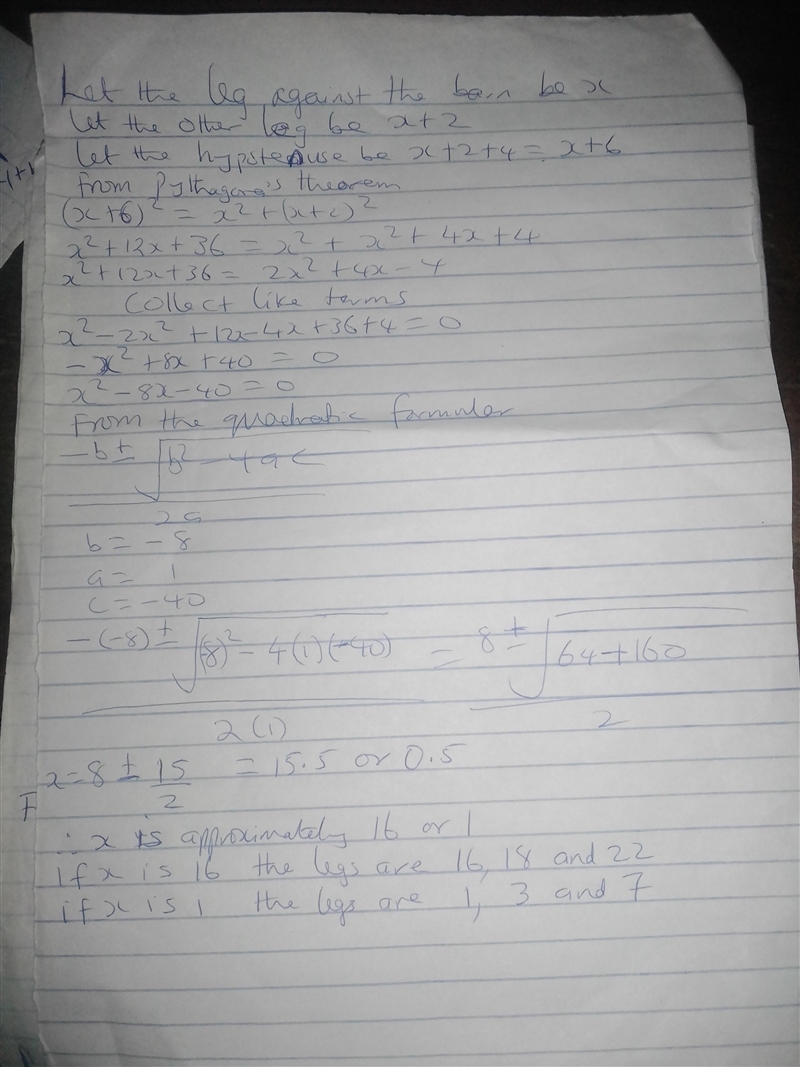 Let the leg against the barn be x
Let the other leg be x+2
Let the hypotenuse be x+2+4 = x+6
From Pythagora's theorem
(x+6)² = x² + (x+2)²
x² + 12x + 36 = x² + x² + 4x + 4
x² + 12x + 36 = 2x² + 4x - 4
Collect like terms
x² - 2x² + 12x - 4x + 36 + 4 = 0
- x² + 8x + 40 = 0
x² - 8x - 40 = 0
From the quadratic formular
-b ± √b² - 4ac
2a
b = -8
a = 1
c = -40
-(-8) ± √(8)² - 4(1)(-40) = 8 ± √64 + 160
2(1) 2
x = 8 ± 15/2 = 15.5 or 0.5
∴ x is approximately 16 or 1
If x is 16 the legs are 16, 18 and 22
if x is 1 the legs are 1, 3 and 7